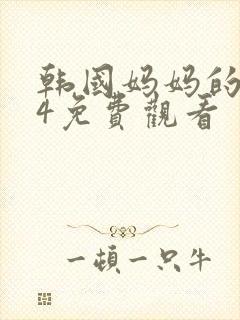 韩國妈妈的
4免費觀看
一頓一只牛